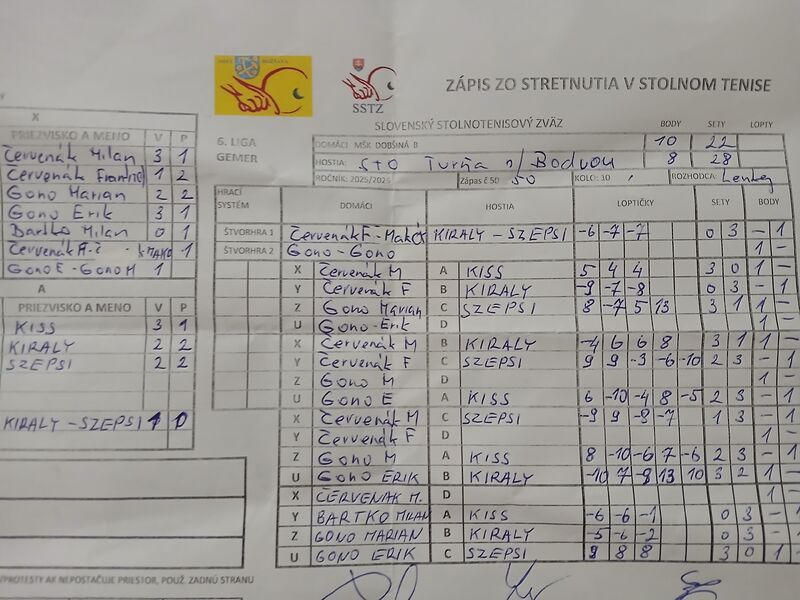 ZÁPIS ZO STRETNUTIA V STOLNOM TENISE
SSTZ
SLOVENSKÝ STOLNOTENISOVÝ ZVÄZ
BODY SETY LOPTY
6. LIGA
GEMER
DOMÁCI MŠK DOBŠINÁ B 10 22
HOSTIA: STO Turňa n/Bodvou 8 28
ROČNÍK: 2025/2026 Zápas č 50 50 KOLO: 10 ROZHODCA:
X
PRIEZVISKO A MENO V P
Červenák Milan 3 1
Červenák 1 2
Gono Marian 2 2
Gono Erik 3 1
Bartko Milan 0 1
Červenák 1
Gono E - Gono M 1
A
PRIEZVISKO A MENO V P
KISS 3 1
KIRALY 2 2
SZEPSI 2 2
KIRALY - SZEPSI 1 0
HRACÍ SYSTÉM DOMÁCI HOSTIA LOPTIČKY SETY BODY
ŠTVORHRA 1 Červenák F - KIRALY - SZEPSI -6 -7 -7 0 3 - 1
ŠTVORHRA 2 Gono - Gono 1 -
X Červenák M A KISS 5 4 4 3 0 1 -
Y Červenák F B KIRALY -9 -7 -8 0 3 - 1
Z Gono Marian C SZEPSI 8 -7 5 13 3 1 1 -
U Gono Erik D 1 -
X Červenák M B KIRALY -4 6 6 8 3 1 1 -
Y Červenák F C SZEPSI 9 9 -3 -6 -10 2 3 - 1
Z Gono M D 1 -
U Gono E A KISS 6 -10 -4 8 -5 2 3 - 1
X Červenák M C SZEPSI -9 9 -7 1 3 - 1
Y Červenák F D 1 -
Z Gono M A KISS 8 -10 -6 7 -6 2 3 - 1
U GONO ERIK B KIRALY -10 7 -8 13 10 3 2 1 -
X ČERVENÁK M. D 1 -
Y BARTKO MILAN A KISS -6 -6 -1 0 3 - 1
Z GONO MARIAN B KIRALY -5 -6 -2 0 3 - 1
U GONO ERIK C SZEPSI 9 8 8 3 0 1 -
PROTESTY AK NEPOSTAČUJE PRIESTOR, POUŽ. ZADNÚ STRANU